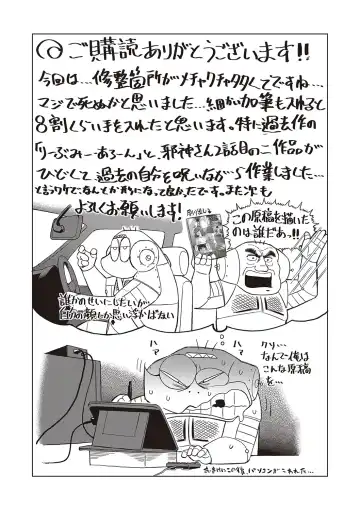 ◎ご購読ありがとうございます!!
今回は…修整箇所がメチャクチャ多くてですね…
マジで死ぬかと思いました…細かい加筆も入れると
8割くらい手を入れたと思います。特に過去作の
「りーぶみーあろーん」と、邪神さん2話目の二作品が
ひどくて、過去の自分を呪いながら作業しました…
と言うワケで、なんとか形になって良かったです。また次も
よろしくお願いします!
この原稿を描いた
のは誰だあっ!!
誰かのせいにしたいが
自分の顔しか思い浮かばない
ハァ
ハァ
クソ…
なんで俺は
こんな原稿
を…